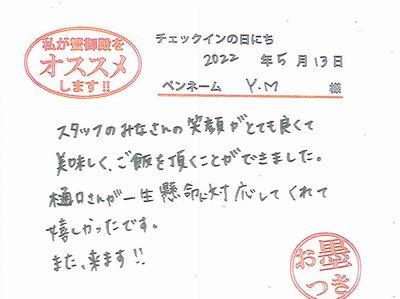 私が蟹御殿を
オススメ
します!!
チェックインの日にち
2022 年 5 月 13 日
ペンネーム Y.M 様
スタッフのみなさんの笑顔がとても良くて
美味しく、ご飯を頂くことができました。
樋口さんが一生懸命に対応してくれて
嬉しかったです。
また、来ます!!
お墨
つき